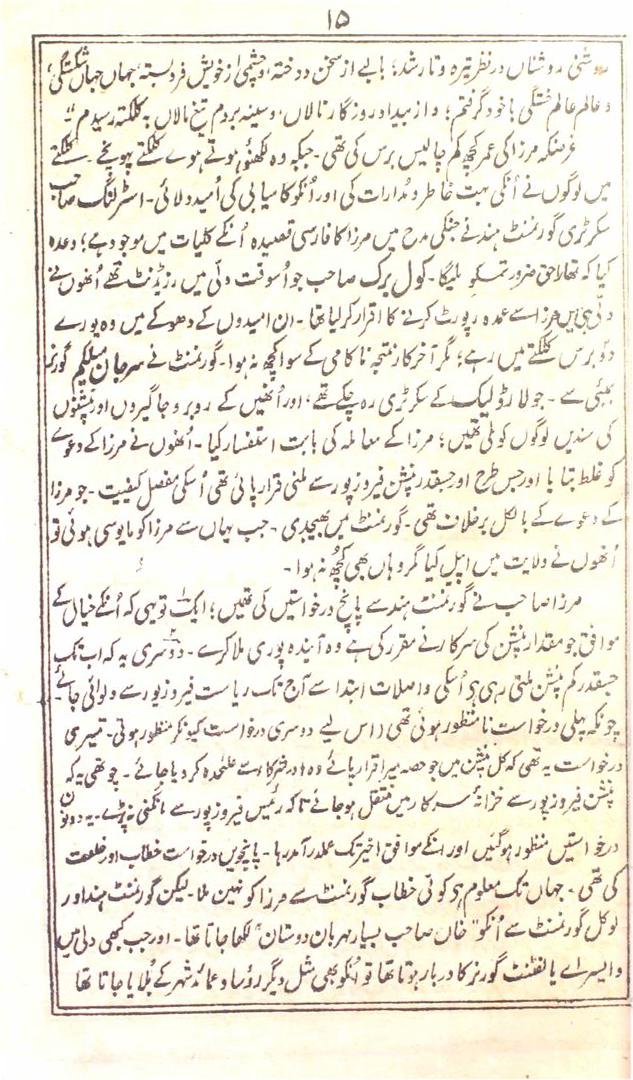 ۱۵
روشنی روشناں در نظر تیرہ و تار شد؛ بالبے از سخن دوختہ، وچشمے از خویش فروبستہ، جہاں جہاں شکستگی،
و عالم عالم خستگی باخود گرفتم؛ و از بیداد روزگار نالاں، وسینہ بردم تیغ مالاں بہ کلکتہ رسیدم"۔
غرضکہ مرزا کی عمر کچھ کم چالیس برس کی تھی۔ جبکہ وہ لکھنؤ ہوتے ہوے کلکتے پہونچے۔ کلکتے
میں لوگوں نے اُنکی بہت خاطر و مدارات کی اور اُنکو کامیابی کی اُمید دلائی۔ اسٹرلنگ صاحب
سکرٹری گورنمنٹ ہند نے جنکی مدح میں مرزا کا فارسی قصیدہ اُنکے کلیات میں موجود ہے؛ وعدہ
کیا کہ تمھارا حق ضرور تمکو ملیگا۔ کول برک صاحب جو اُسوقت دلّی میں رزیڈنٹ تھے اُنھوں نے
دلّی ہی میں مرزا سے عمدہ رپورٹ کرنے کا اقرار کرلیا تھا۔ ان امیدوں کے دھوکے میں وہ پورے
دو برس کلکتے میں رہے؛ مگر آخرکار نتیجہ ناکامی کے سوا کچھ نہ ہوا۔ گورنمنٹ نے سرجان میلکم گورنر
بمبئی سے۔ جو لارڈ لیک کے سکرٹری رہ چکے تھے، اور اُنھیں کے روبرو جاگیروں اور پنشنوں
کی سندیں لوگوں کو ملی تھیں؛ مرزا کے معاملہ کی بابت استفسار کیا۔ اُنھوں نے مرزا کے دعوے
کو غلط بتایا اور جس طرح اور جسقدر پنشن فیروزپور سے ملنی قرار پائی تھی اُسکی مفصل کیفیت۔ جو مرزا
کے دعوے کے بالکل برخلاف تھی۔ گورنمنٹ میں بھیجدی۔ جب یہاں سے مرزا کو مایوسی ہوئی تو
اُنھوں نے ولایت میں اپیل کیا مگر وہاں بھی کچھ نہ ہوا۔
مرزا صاحب نے گورنمنٹ ہند سے پانچ درخواستیں کی تھیں؛ ایک تو یہی کہ اُنکے خیال کے
موافق جو مقدار پنشن کی سرکار نے مقرر کی ہے وہ آیندہ پوری ملا کرے۔ دوسری یہ کہ اب تک
جسقدر کم پنشن ملتی رہی ہے اُسکی واصلات ابتدا سے آج تک ریاست فیروزپور سے دلوائی جائے۔
چونکہ پہلی درخواست نامنظور ہوئی تھی؛ اس لیے دوسری درخواست کیونکر منظور ہوتی۔ تیسری
درخواست یہ تھی کہ کل پنشن میں جو حصہ میرا قرار پائے وہ اور شرکا سے علٰحدہ کردیا جائے۔ چوتھی یہ کہ
پنشن فیروزپور سے خزانۂ سرکار میں منتقل ہوجائے تاکہ رئیس فیروزپور سے مانگنی نہ پڑے۔ یہ دونوں
درخواستیں منظور ہوگئیں اور انکے موافق اخیر تک عملدرآمد رہا۔ پانچویں درخواست خطاب اور خلعت
کی تھی۔ جہاں تک معلوم ہے کوئی خطاب گورنمنٹ سے مرزا کو نہیں ملا۔ لیکن گورنمنٹ ہند اور
لوکل گورنمنٹ سے اُنکو "خاں صاحب بسیار مہربان دوستان" لکھا جاتا تھا۔ اور جب کبھی دلی میں
وایسراے یا لفٹنٹ گورنر کا دربار ہوتا تھا تو اُنکو بھی مثل دیگر رؤسا و عمائد شہر کے بُلایا جاتا تھا